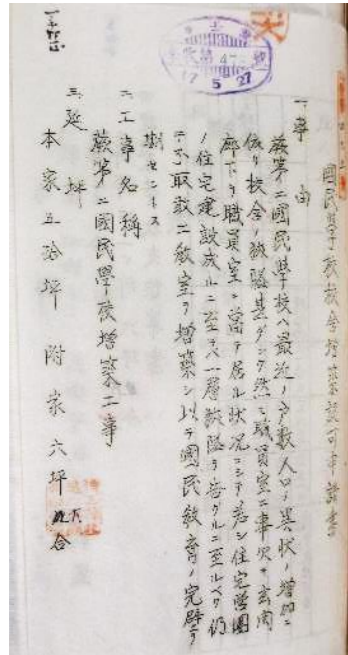 國民學校校舍增築認可申請書
一、事由
蕨第二國民學校ハ最近ノ多數人口ノ異狀ノ增加ニ
依リ校舍ノ狹隘甚ダシク然モ職員室ニ事欠キ玄關
廊下ヲ職員室ニ當テ居ル狀況ニシテ若シ住宅營團
ノ住宅建設成ルニ至ラバ一層狹隘ヲ告グルニ至ルベク仍
テ不取敢二教室ヲ增築シ以テ國民敎育ノ完璧ヲ
期セントス
二、工事名稱
蕨第二國民學校增築工事
三、延坪
本家五拾坪 附家六坪 合
17 5 27